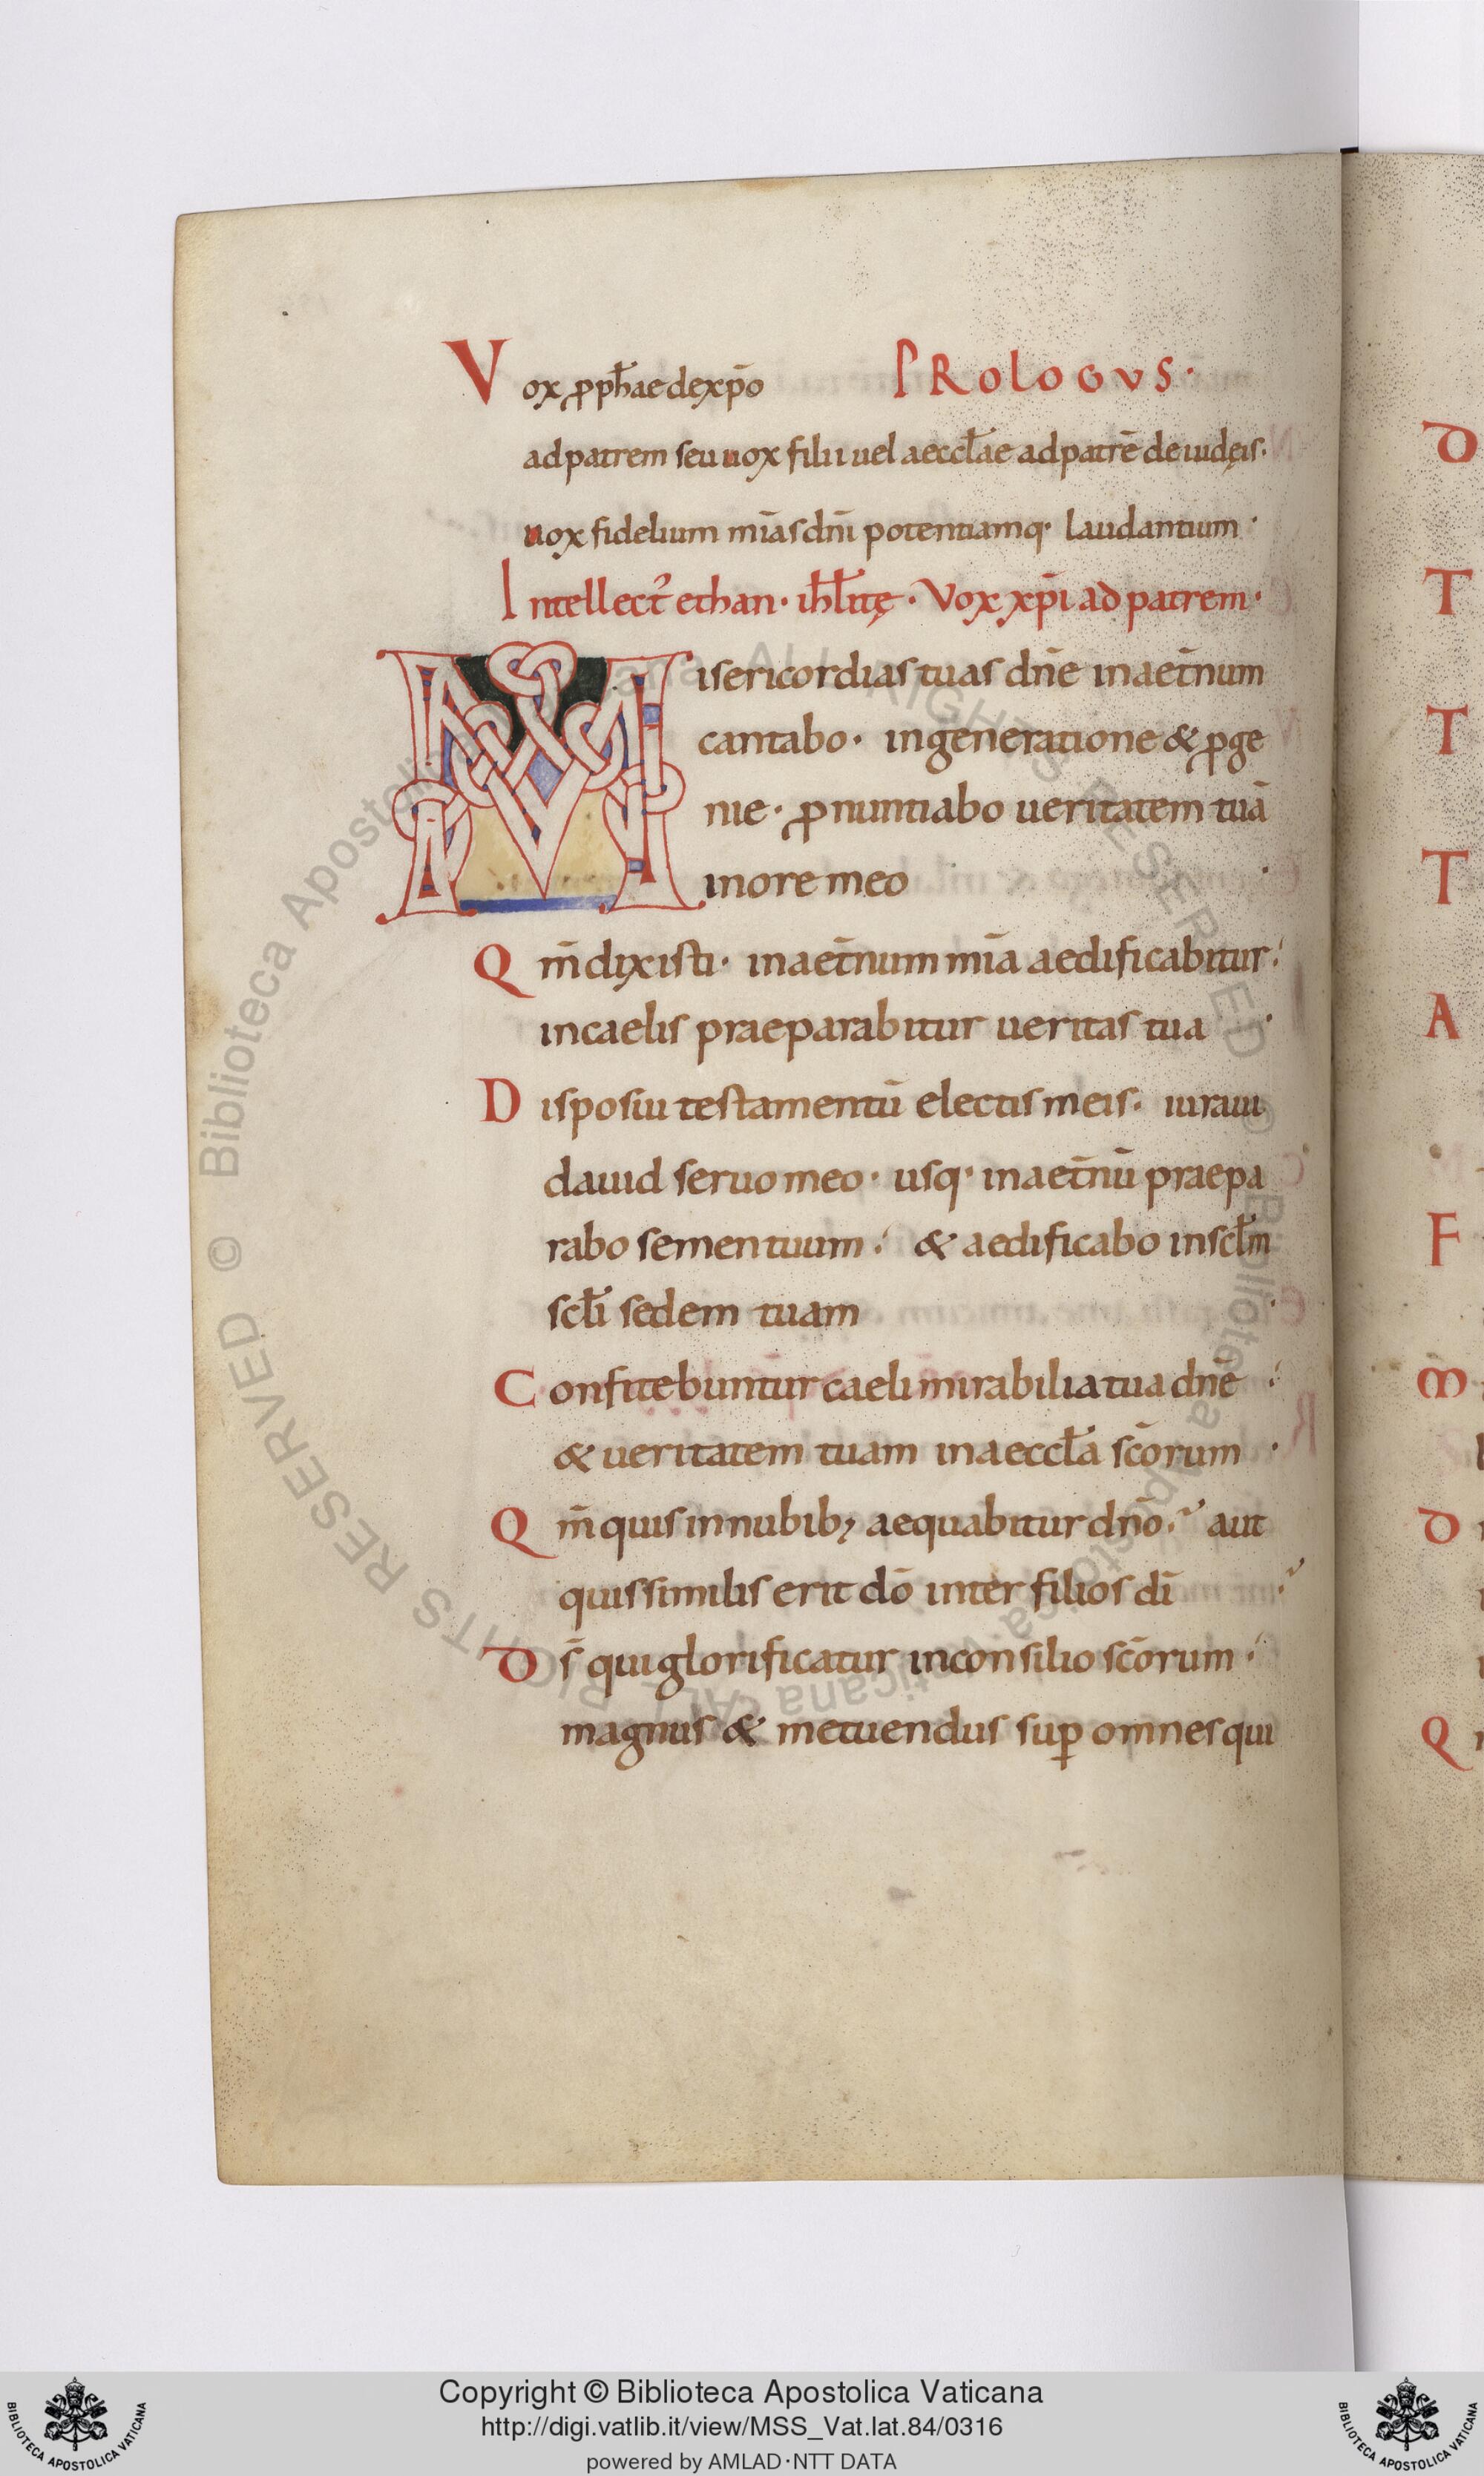 Vox ꝓph̄ae de xp̄o PROLOGVS·
ad patrem seu uox filii uel aeccl̄ae ad patrē de iudęis·
uox fidelium mīas dn̄i potentiamq· laudantium·
Intellect᷒ ethan· ihl̄itę· Vox xp̄i ad patrem·
Misericordias tuas dn̄e in aet̄num
cantabo· in generatione & ꝓge
nie· ꝓnuntiabo ueritatem tuā
in ore meo·
Qm̄ dixisti· in aet̄num mīa aedificabitur:
in caelis praeparabitur ueritas tua·
Disposui testamentū electis meis· iuraui
dauid seruo meo· usq· in aet̄nū praepa
rabo semen tuum: & aedificabo in scl̄m
scl̄i sedem tuam·
Confitebuntur caeli mirabilia tua dn̄e:
& ueritatem tuam in aeccl̄a sc̄orum·
Qm̄ quis in nubib; aequabitur dn̄o· aut
quis similis erit dō inter filios dī
Ds̄ qui glorificatur in consilio sc̄orum·
magnus & metuendus suꝑ omnes qui
D
T
T
T
A
F
m
D
Q
Copyright © Biblioteca Apostolica Vaticana
http://digi.vatlib.it/view/MSS_Vat.lat.84/0316
powered by AMLAD·NTT DATA
BIBLIOTECA APOSTOLICA VATICANA
BIBLIOTECA APOSTOLICA VATICANA